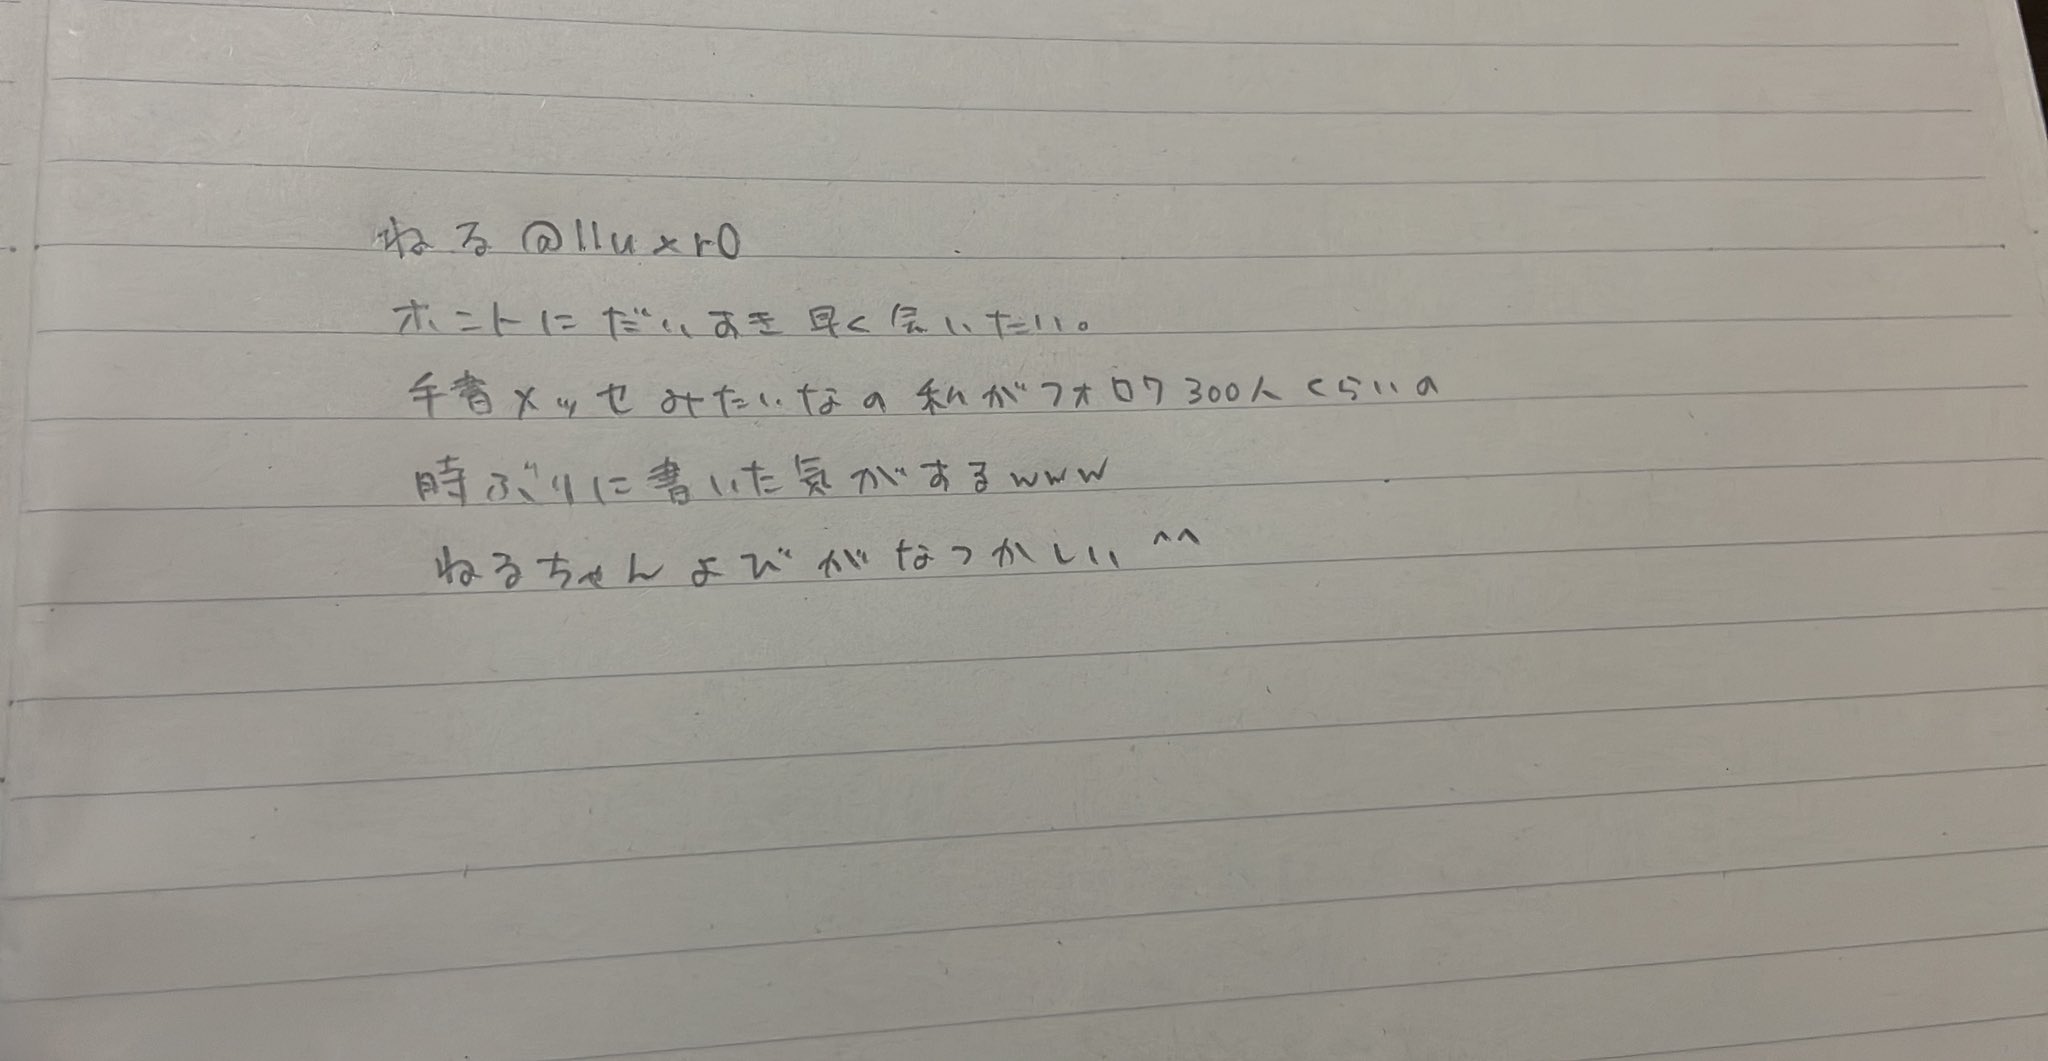 ねる @lluxr0
ホントにだいすき早く会いたい。
手書メッセみたいなの私がフォロワ300人くらいの
時ぶりに書いた気がするwww
ねるちゃんよびがなつかしい^^